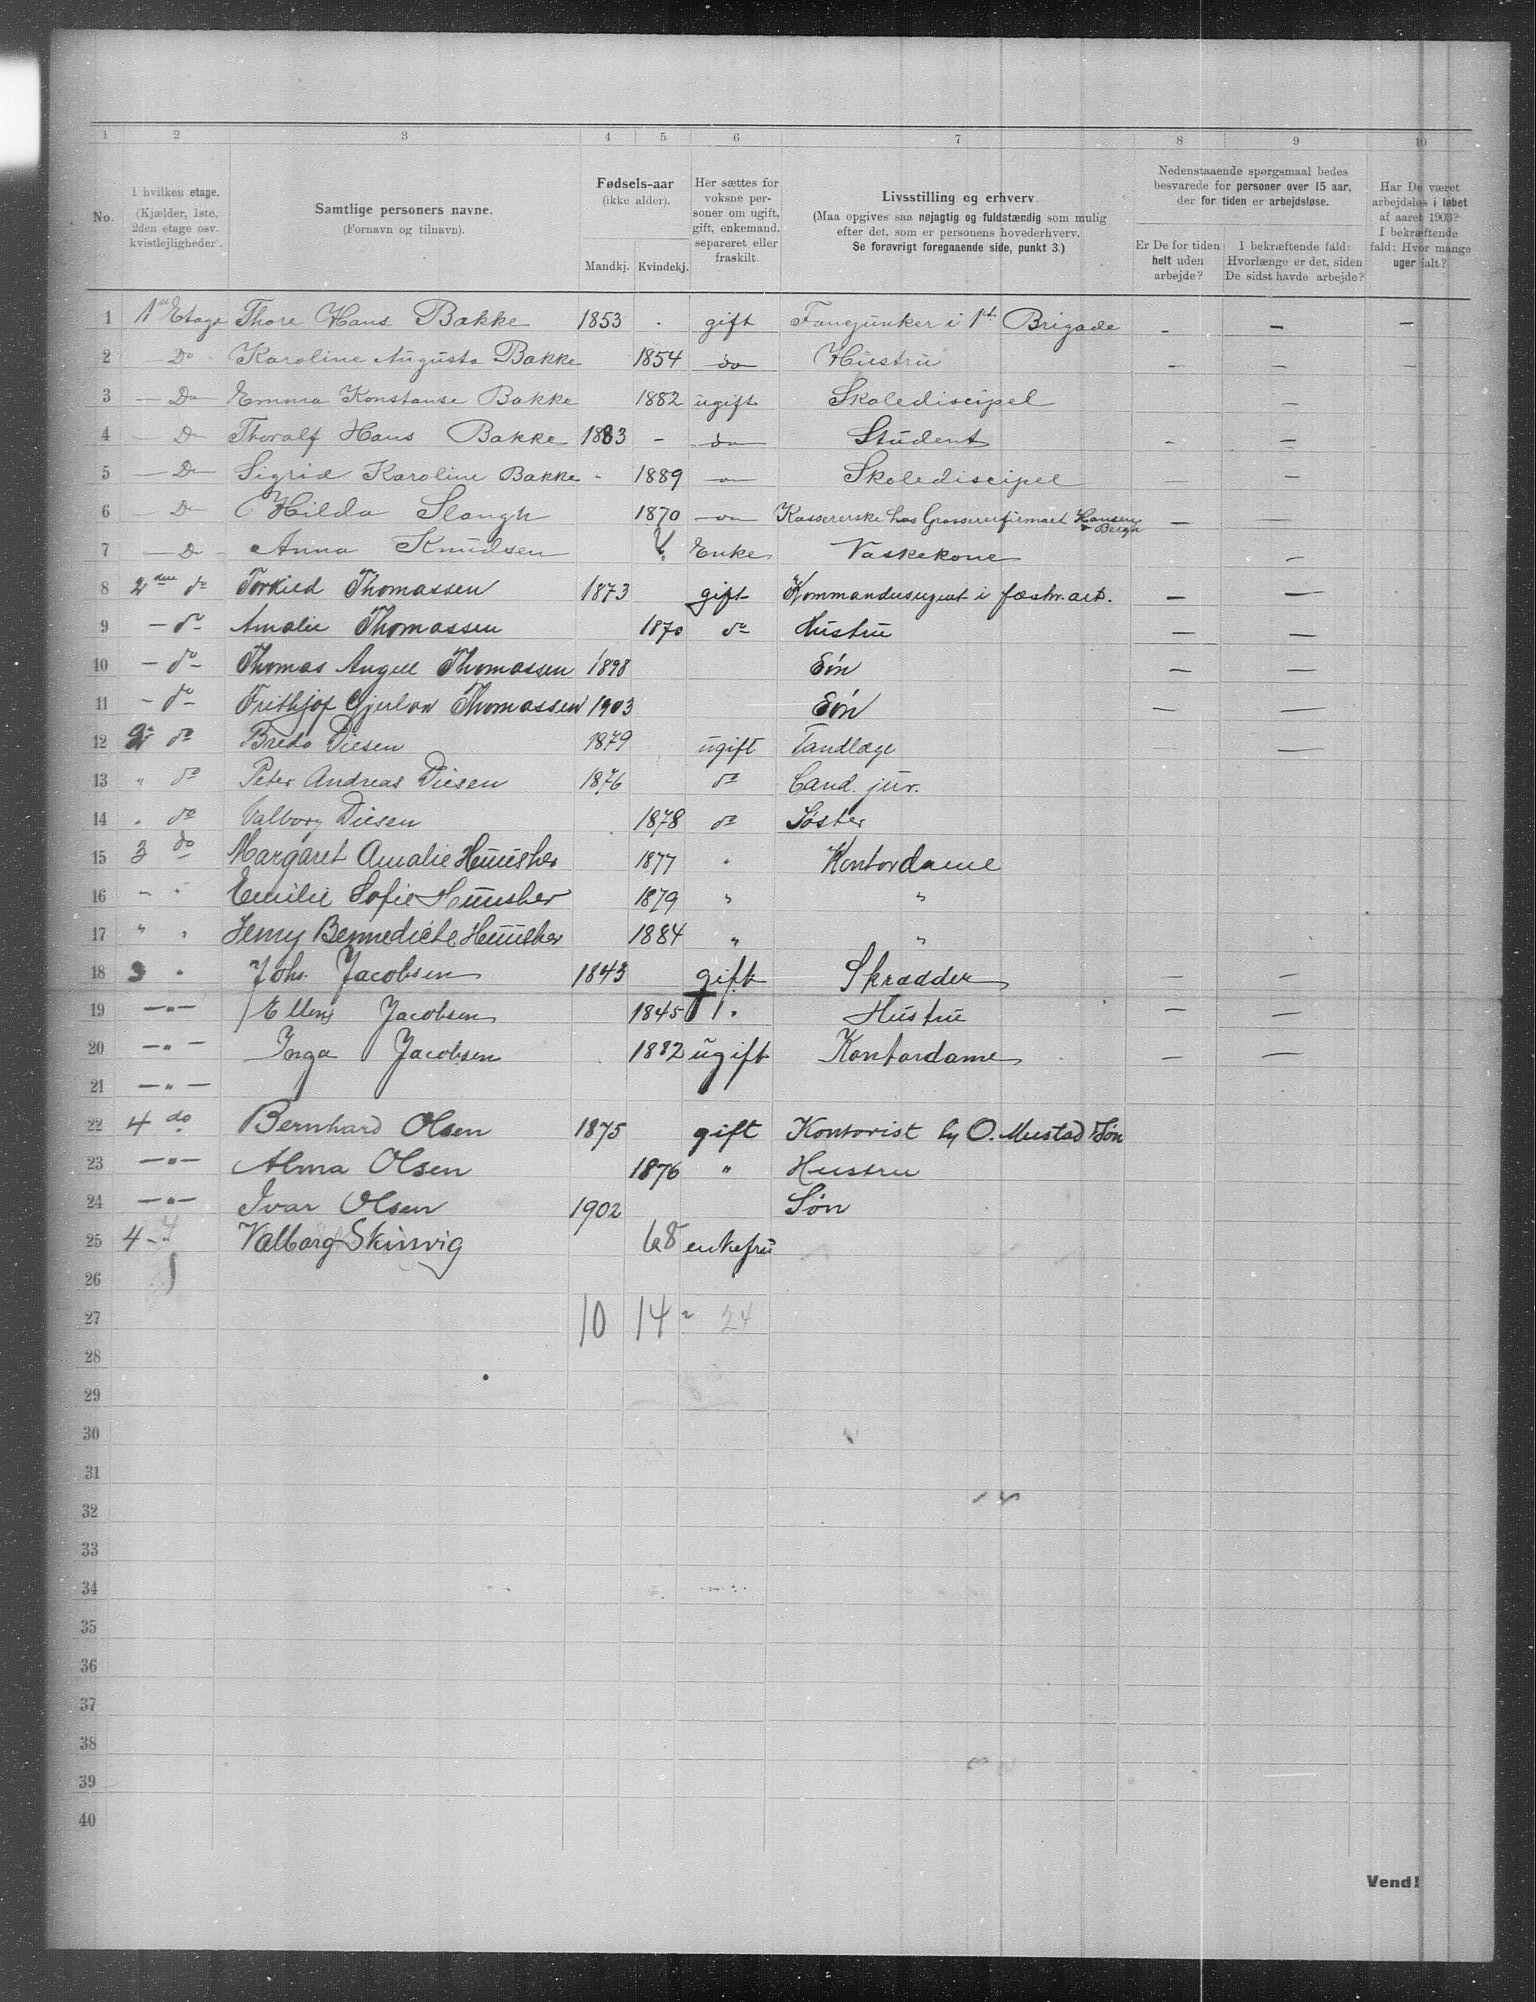 1 2 3 4 5 6 7 8 9 10
No.
I hvilken etage. (Kjælder, 1ste, 2den etage osv. kvistlejligheder).
Samtlige personers navne. (Fornavn og tilnavn).
Fødsels-aar (ikke alder).
Mandkj. Kvindekj.
Her sættes for voksne personer om ugift, gift, enkemand, separeret eller fraskilt.
Livsstilling og erhverv.
(Maa opgives saa nøjagtig og fuldstændig som mulig efter det, som er personens hovederhverv.
Se forøvrigt foregaaende side, punkt 3.)
Nedenstaaende spørgsmaal bedes besvarede for personer over 15 aar, der for tiden er arbejdsløse.
Er De for tiden helt uden arbejde?
I bekræftende fald: Hvorlænge er det, siden De sidst havde arbejde?
Har De været arbejdsløs i løbet af aaret 1903? I bekræftende fald: Hvor mange uger ialt?
1 1ste Etage Thore Hans Bakke 1853 - gift Fanejunker i 1st Brigade - - -
2 - Do Karoline Augusta Bakke 1854 do Hustru - - -
3 - Do Emma Konstanse Bakke 1882 ugift Skolediscipel -
4 - D Thoralf Hans Bakke 1883 - do Student - -
5 - Do Sigrid Karoline Bakke - 1889 do Skolediscipel - -
6 - Do Hilda Slangh 1870 do Kassererske hos Grossererfirmaet Hansen & Bergh - -
7 - D - Anna Knudsen ? Enke Vaskekone -
8 2den do Torkild Thomassen 1873 gift Kommandersergeant i fæstn. art. - -
9 - do Amalie Thomassen 1870 do Hustru - -
10 - do - Thomas Angell Thomassen 1898 Søn - -
11 - do - Frithjof Thomassen 1903 Søn - -
12 2 do Bredo Diesen 1879 ugift Tandlæge - -
13 " do Peter Andreas Diesen 1876 do Cand. jur.
14 " do Valborg Diesen 1878 do Søster
15 3 do Margaret Amalie 1877 " Kontordame
16 - " Emilie Sofie 1879 " "
17 " " Jenny Bennedicte 1884 " "
18 3 " Johs. Jacobsen 1843 gift Skrædder - -
19 - " - Ellen Jacobsen 1845 " Hustru - -
20 - " - Inga Jacobsen 1882 ugift Kontordame - -
21 - " -
22 4 do Bernhard Olsen 1875 gift Kontorist hj O. Mustad & Søn
23 - " - Alma Olsen 1876 " Hustru
24 - " - Ivar Olsen 1902 Søn
25 4 - Valborg Skinsvig 68 enkefru
26
27 10 14 = 24
28
29
30
31
32
33
34
35
36
37
38
39
40
Vend!